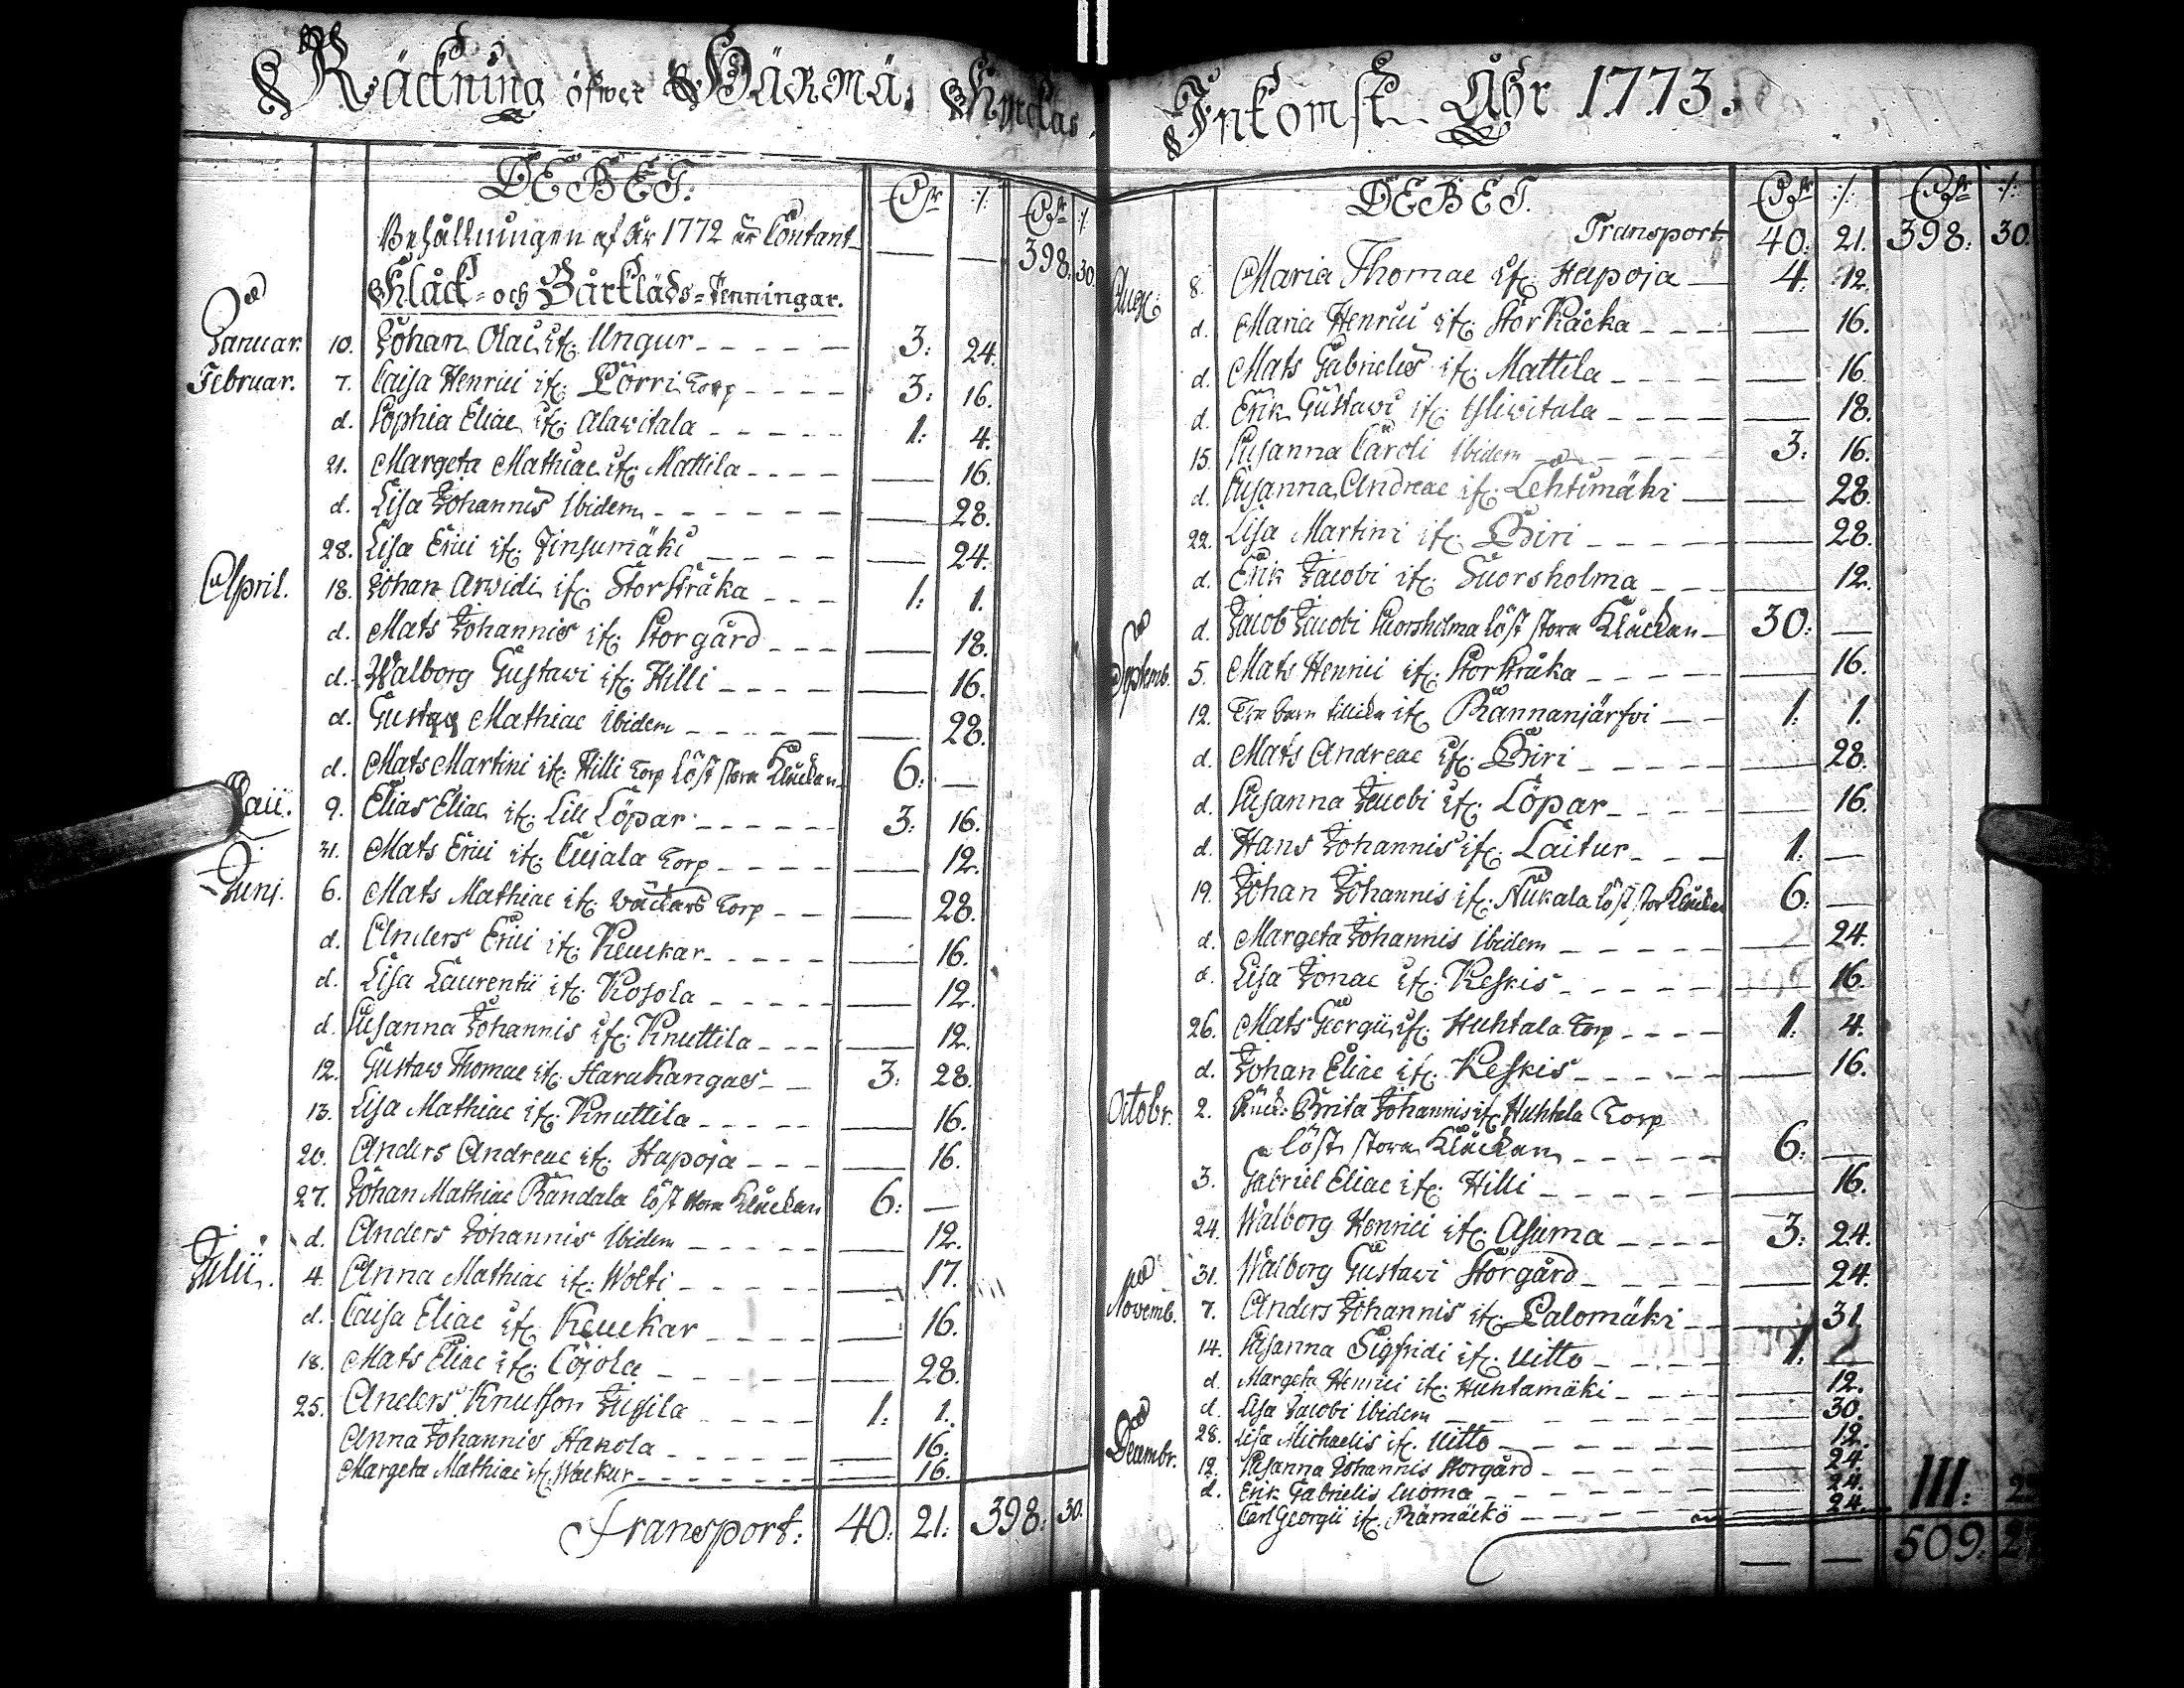 Räckning öfwer Härmä Kyrckas
DEBET. Dlr :/. Dlr :/.
Behållningen af år 1772 är Contant — — 398: 30
Klåck- och Bårkläds-Penningar.
Januar. 10. Johan Olai ifr: Ungur 3: 24.
Februar. 7. Caisa Henrici ifr: Pörri Torp 3: 16.
d. Sophia Eliae ifr: Alawitala 1: 4.
21. Margeta Mathiae ifr: Mattila — 16.
d. Lisa Johannis Ibidem — 28.
28. Lisa Erici ifr: — 24.
April. 18. Johan Arwidi ifr: Storstråka 1: 1.
d. Mats Johannis ifr: Storgård — 18.
d. Walborg Gustawi ifr: Hilli — 16.
d. Gustav Mathiae Ibidem — 28.
d. Mats Martini ifr: Hilli Torp löst stora Klåckan 6: —
Maii. 9. Elias Eliae ifr: Lill Löpar 3: 16.
31. Mats Erici ifr: Cujala Torp — 12.
Junj. 6. Mats Mathiae ifr: Wäckars Torp — 28.
d. Anders Erici ifr: Keuckar — 16.
d. Lisa Laurentii ifr: Kosola — 12.
d. Susanna Johannis ifr: Knuttila — 12.
12. Gustaw Thomae ifr: Harakangas 3: 28.
13. Lisa Mathiae ifr: Knuttila — 16.
20. Anders Andreae ifr: Hapoja — 16.
27. Johan Mathiae Randala löst stora Klåckan 6: —
d. Anders Johannis Ibidem — 12.
Julii. 4. Anna Mathiae ifr: Wolti — 17.
d. Caisa Eliae ifr: Keuckar — 16.
18. Mats Eliae ifr: Cojola — 28.
25. Anders Knutson Jussila 1: 1.
Anna Johannis Hakola — 16.
Margeta Mathiae ifr: Wackur — 16.
Transport: 40: 21: 398: 30.
Inkomst Åhr 1773.
DEBET. Dlr :/. Dlr :/:
Transport: 40: 21. 398: 30.
Aug. 8. Maria Thomae ifr: Hapoja 4: 12.
d. Maria Henrici ifr: StorKåcka — 16.
d. Mats Gabrielis ifr: Mattila — 16.
d. Erik Gustawi ifr: Yliwitala — 18.
15. Susanna Caroli Ibidem 3: 16.
d. Susanna Andreae ifr: Lehtimäki — 28.
22. Lisa Martini ifr: Biri — 28.
d. Erik Jacobi ifr: Suorsholma — 12.
d. Jacob Jacobi Suorsholma löst stora Klåckan 30: —
Septemb. 5. Mats Henrici ifr: Storstråka — 16.
12. Tre barn tillika ifr: Rannanjärfvi 1: 1.
d. Mats Andreae ifr: Biri — 28.
d. Susanna Jacobi ifr: Löpar — 16.
d. Hans Johannis ifr: Laitur 1: —
19. Johan Johannis ifr: Nukala löst stor Klåckan 6: —
d. Margeta Johannis Ibidem — 24.
d. Lisa Jonae ifr: Keskis — 16.
26. Mats Georgii ifr: Huhtala Torp 1: 4.
d. Johan Eliae ifr: Keskis — 16.
Octobr. 2. Brita Johannis ifr: Huhtala Torp
löst stora Klåckan 6: —
3. Gabriel Eliae ifr: Hilli — 16.
24. Walborg Henrici ifr: Asuma 3: 24.
31. Walborg Gustawi Storgård — 24.
Novemb. 7. Anders Johannis ifr: Palomäki — 31.
14. Susanna Sigfridi ifr: Uitto 1: —
d. Margeta Henrici ifr: Huhtamäki — 12.
d. Lisa Jacobi Ibidem — 30.
28. Lisa Michaelis ifr: Uitto — 12.
Decembr. 12. Susanna Johannis Storgård — 24.
d. Erik Gabrielis Luoma — 24.
Carl Georgii ifr: Rämäckö — 24. 111:
— — 509: